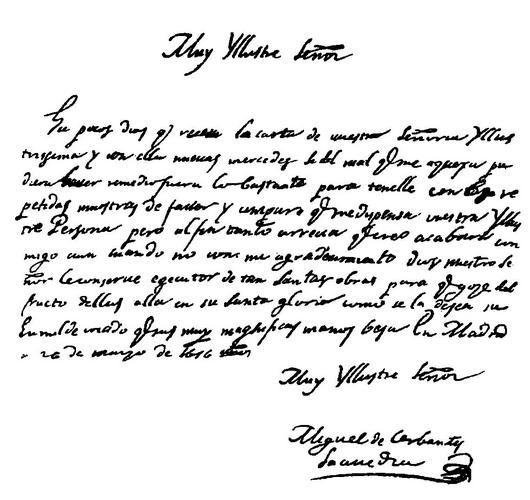 Muy Yllustre Señor
Ha pocos dias q̃ receui la carta de vuestra Señoria Yllus
trisima y con ella nueuas mercedes si del mal q̃ me aquexa pu
diera hauer remedio fuera lo bastante para tenelle con re
petidas muestras de fauor y amparo q̃ me dispensa vuestra Yllus
tre Persona pero al fin tanto arrecia q̃ creo acabara con
migo aun cuando no con mi agradecimiento Dios nuestro Se
ñor le conserue egecutor de tan santas obras para q̃ goze del
fructo dellas alla en su santa gloria como se la desea su
humilde criado q̃ sus muy magnificas manos besa En Madrid
a 26 de março de 1616 años
Muy Yllustre Señor
Miguel de Cerbantes
Saauedra